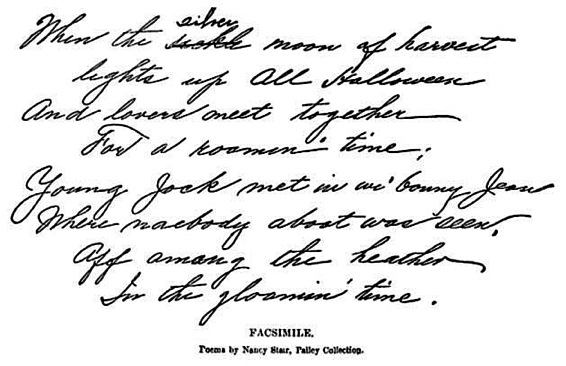 When the silver sickle moon of harvest
Lights up All Halloween
And lovers meet together
For a roamin' time;
Young Jock met in wi' bonny Jean
Where naebody aboot was seen,
Aff among the heather
In the gloamin' time.
FACSIMILE.
Poems by Nancy Stair, Pailey Collection.